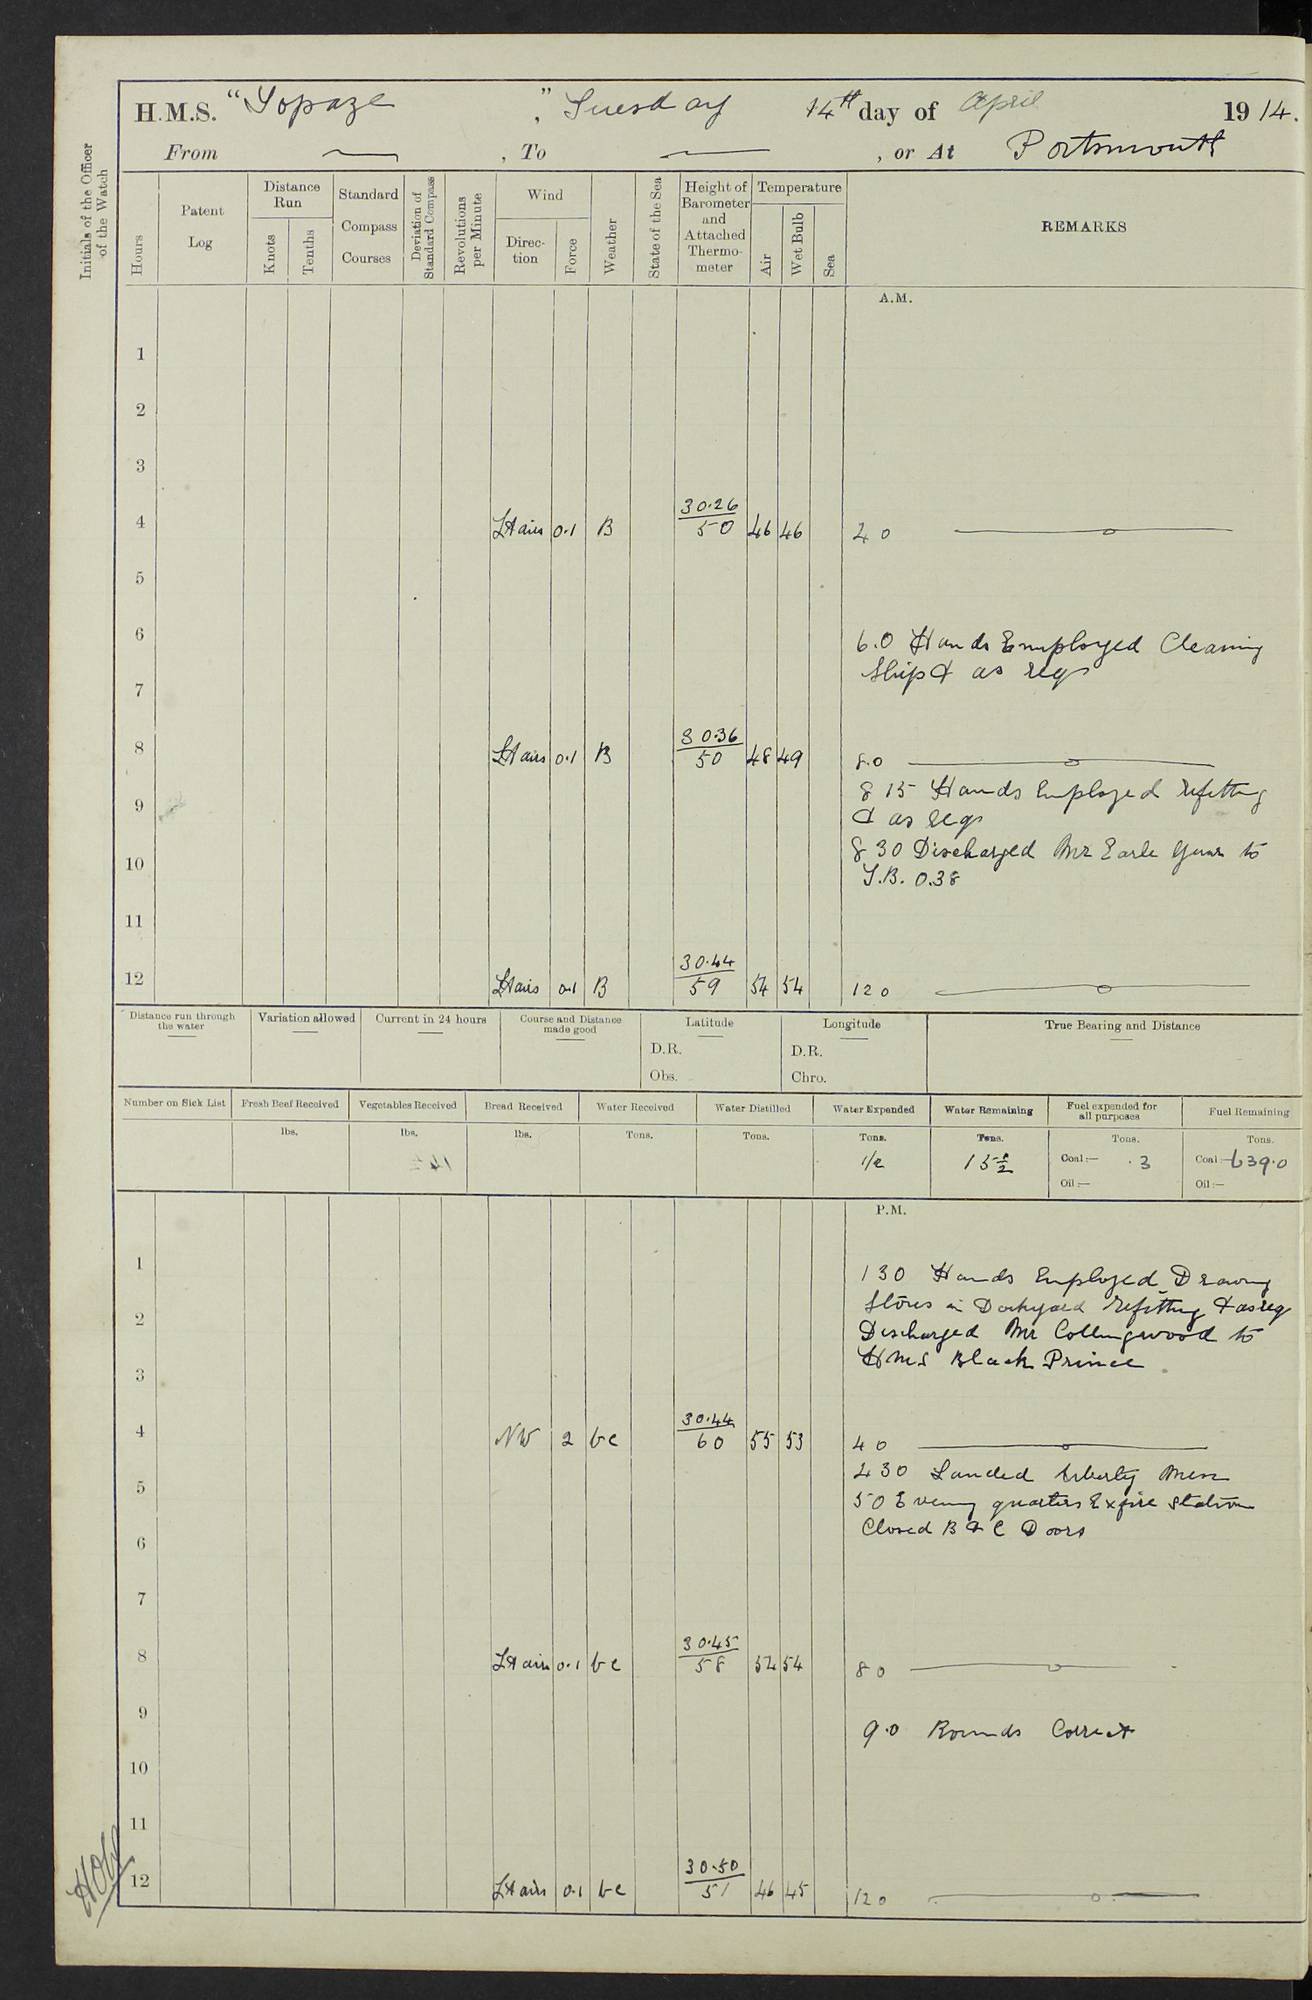 H.M.S. "Topaze", Tuesday 14th day of April 1914.
From , To , or At Portsmouth
Initials of the Officer of the Watch
Hours
Patent Log
Distance Run
Knots
Tenths
Standard Compass Courses
Deviation of Standard Compass
Revolutions per Minute
Wind
Direction
Force
Weather
State of the Sea
Height of Barometer and Attached Thermometer
Temperature
Air
Wet Bulb
Sea
REMARKS
A.M.
1
2
3
4 Lt airs 0.1 B 30.26/50 46 46 4 0
5
6 6.0 Hands Employed Cleaning
Ship & as req
7
8 Lt airs 0.1 B 30.36/50 48 49 8.0
8 15 Hands Employed refitting
9
& as req
8 30 Discharged Mr Earle Gunr to
10
T.B. 0.38
11
12 Lt airs 0.1 B 30.44/59 54 54 12 0
Distance run through the water
Variation allowed
Current in 24 hours
Course and Distance made good
Latitude
D.R.
Obs.
Longitude
D.R.
Chro.
True Bearing and Distance
Number on Sick List
Fresh Beef Received
lbs.
Vegetables Received
lbs.
Bread Received
lbs.
Water Received
Tons.
Water Distilled
Tons.
Water Expended
Tons.
Water Remaining
Tons.
Fuel expended for all purposes
Tons.
Coal:— .3
Oil:—
Fuel Remaining
Tons.
Coal:— 639.0
Oil:—
P.M.
1
1 30 Hands Employed Drawing
Stores in Dockyard refitting & as req
2
Discharged Mr Collingwood to
HMS Black Prince
3
4 NW 2 bc 30.44/60 55 53 4 0
4 30 Landed liberty Men
5
5 0 Evening quarters Ex fire Station
Closed B & C Doors
6
7
8 Lt airs 0.1 bc 30.45/58 54 54 8 0
9 9.0 Rounds Correct
10
11
12 Lt airs 0.1 bc 30.50/51 46 45 12 0